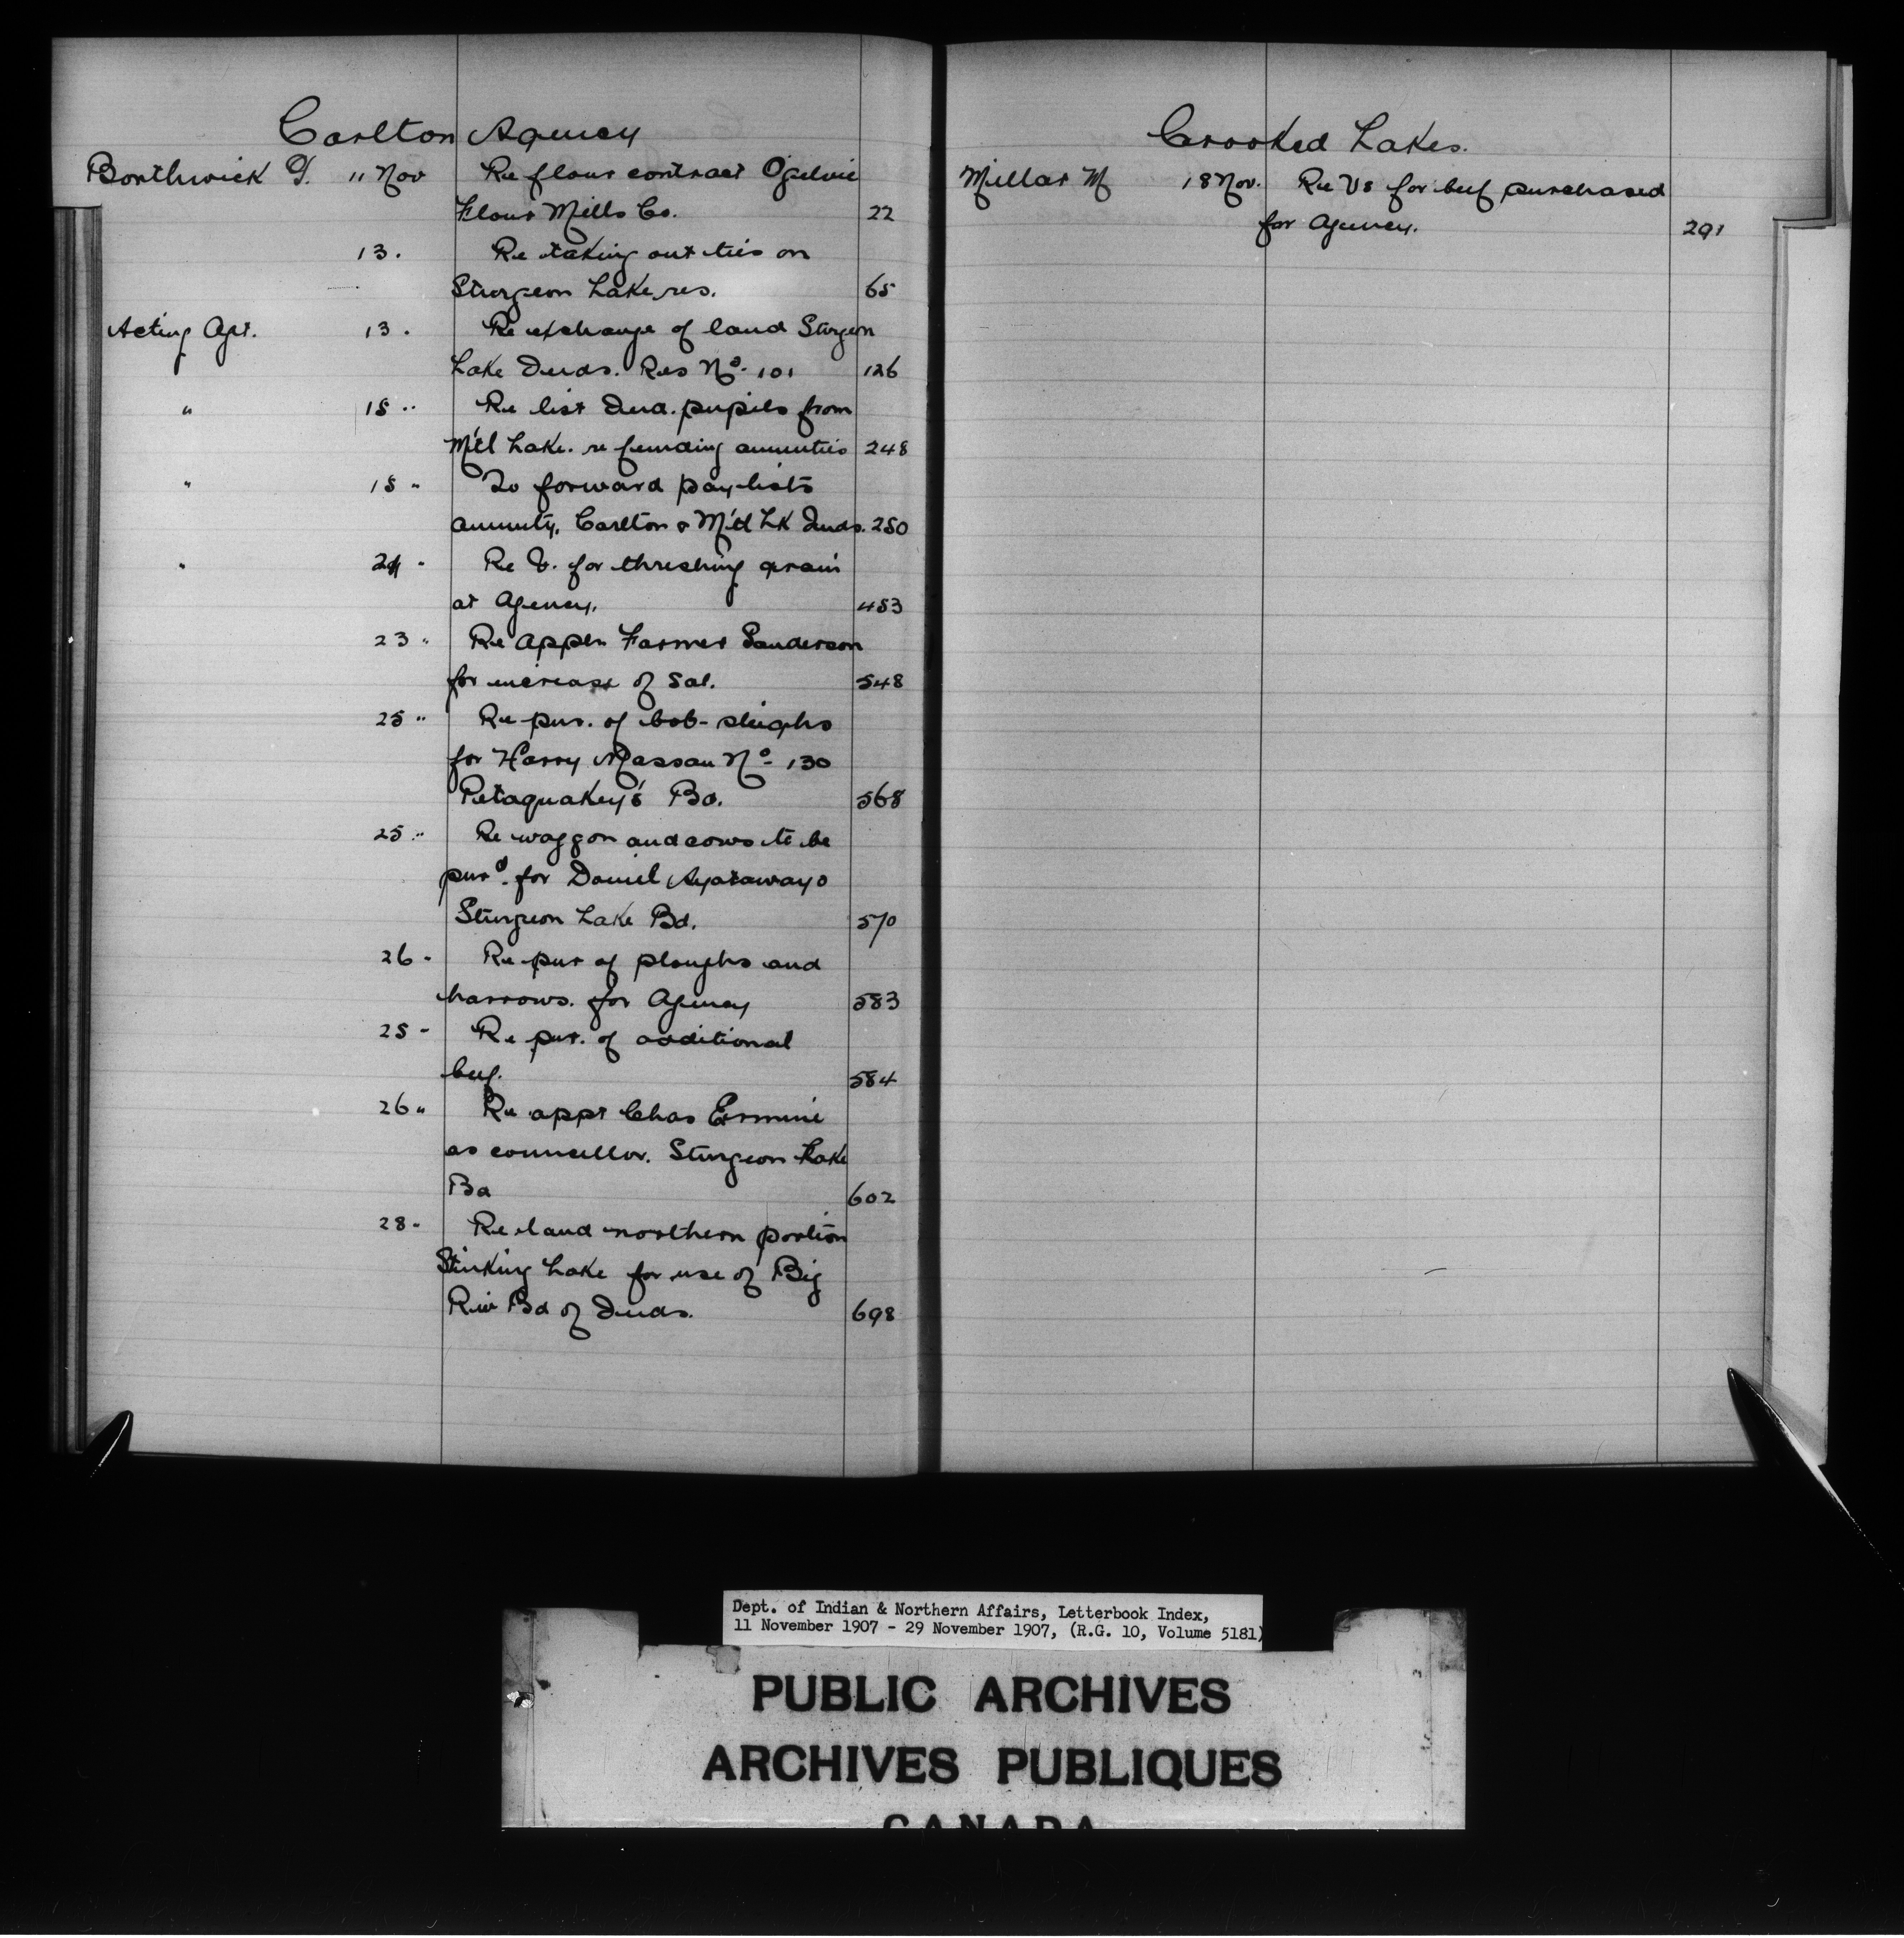 Carlton Agency
Borthwick T. 11 Nov Re flour contract Ogilvie
Flour Mills Co. 22
13. Re taking out ties on
Sturgeon Lake res. 65
Acting Agt. 13. Re exchange of land Sturgeon
Lake Inds. Res No. 101 126
" 15 " Re list Ind. pupils from
M'tl Lake. re funding annuities 248
" 15 " To forward pay-lists
annuity, Carlton & M'tl Lk Inds. 250
" 21 " Re V. for threshing grain
at Agency. 453
23 " Re appln Farmer Sanderson
for increase of Sal. 548
25 " Re pur. of bob-sleighs
for Harry Massan No. 130
Petaquakey's Bd. 568
25 " Re waggon and cows to be
purd. for Daniel Ayatawayo
Sturgeon Lake Bd. 570
26 " Re pur of ploughs and
harrows. for Agency 583
25 " Re pur. of additional
beef. 584
26 " Re appt Chas Ermine
as councillor. Sturgeon Lake
Bd 602
28 " Re land northern portion
Stinking Lake for use of Big
Riv Bd of Inds. 698
Crooked Lakes.
Millar M 18 Nov. Re Vs for beef purchased
for Agency. 291
Dept. of Indian & Northern Affairs, Letterbook Index,
11 November 1907 - 29 November 1907, (R.G. 10, Volume 5181)
PUBLIC ARCHIVES
ARCHIVES PUBLIQUES
CANADA